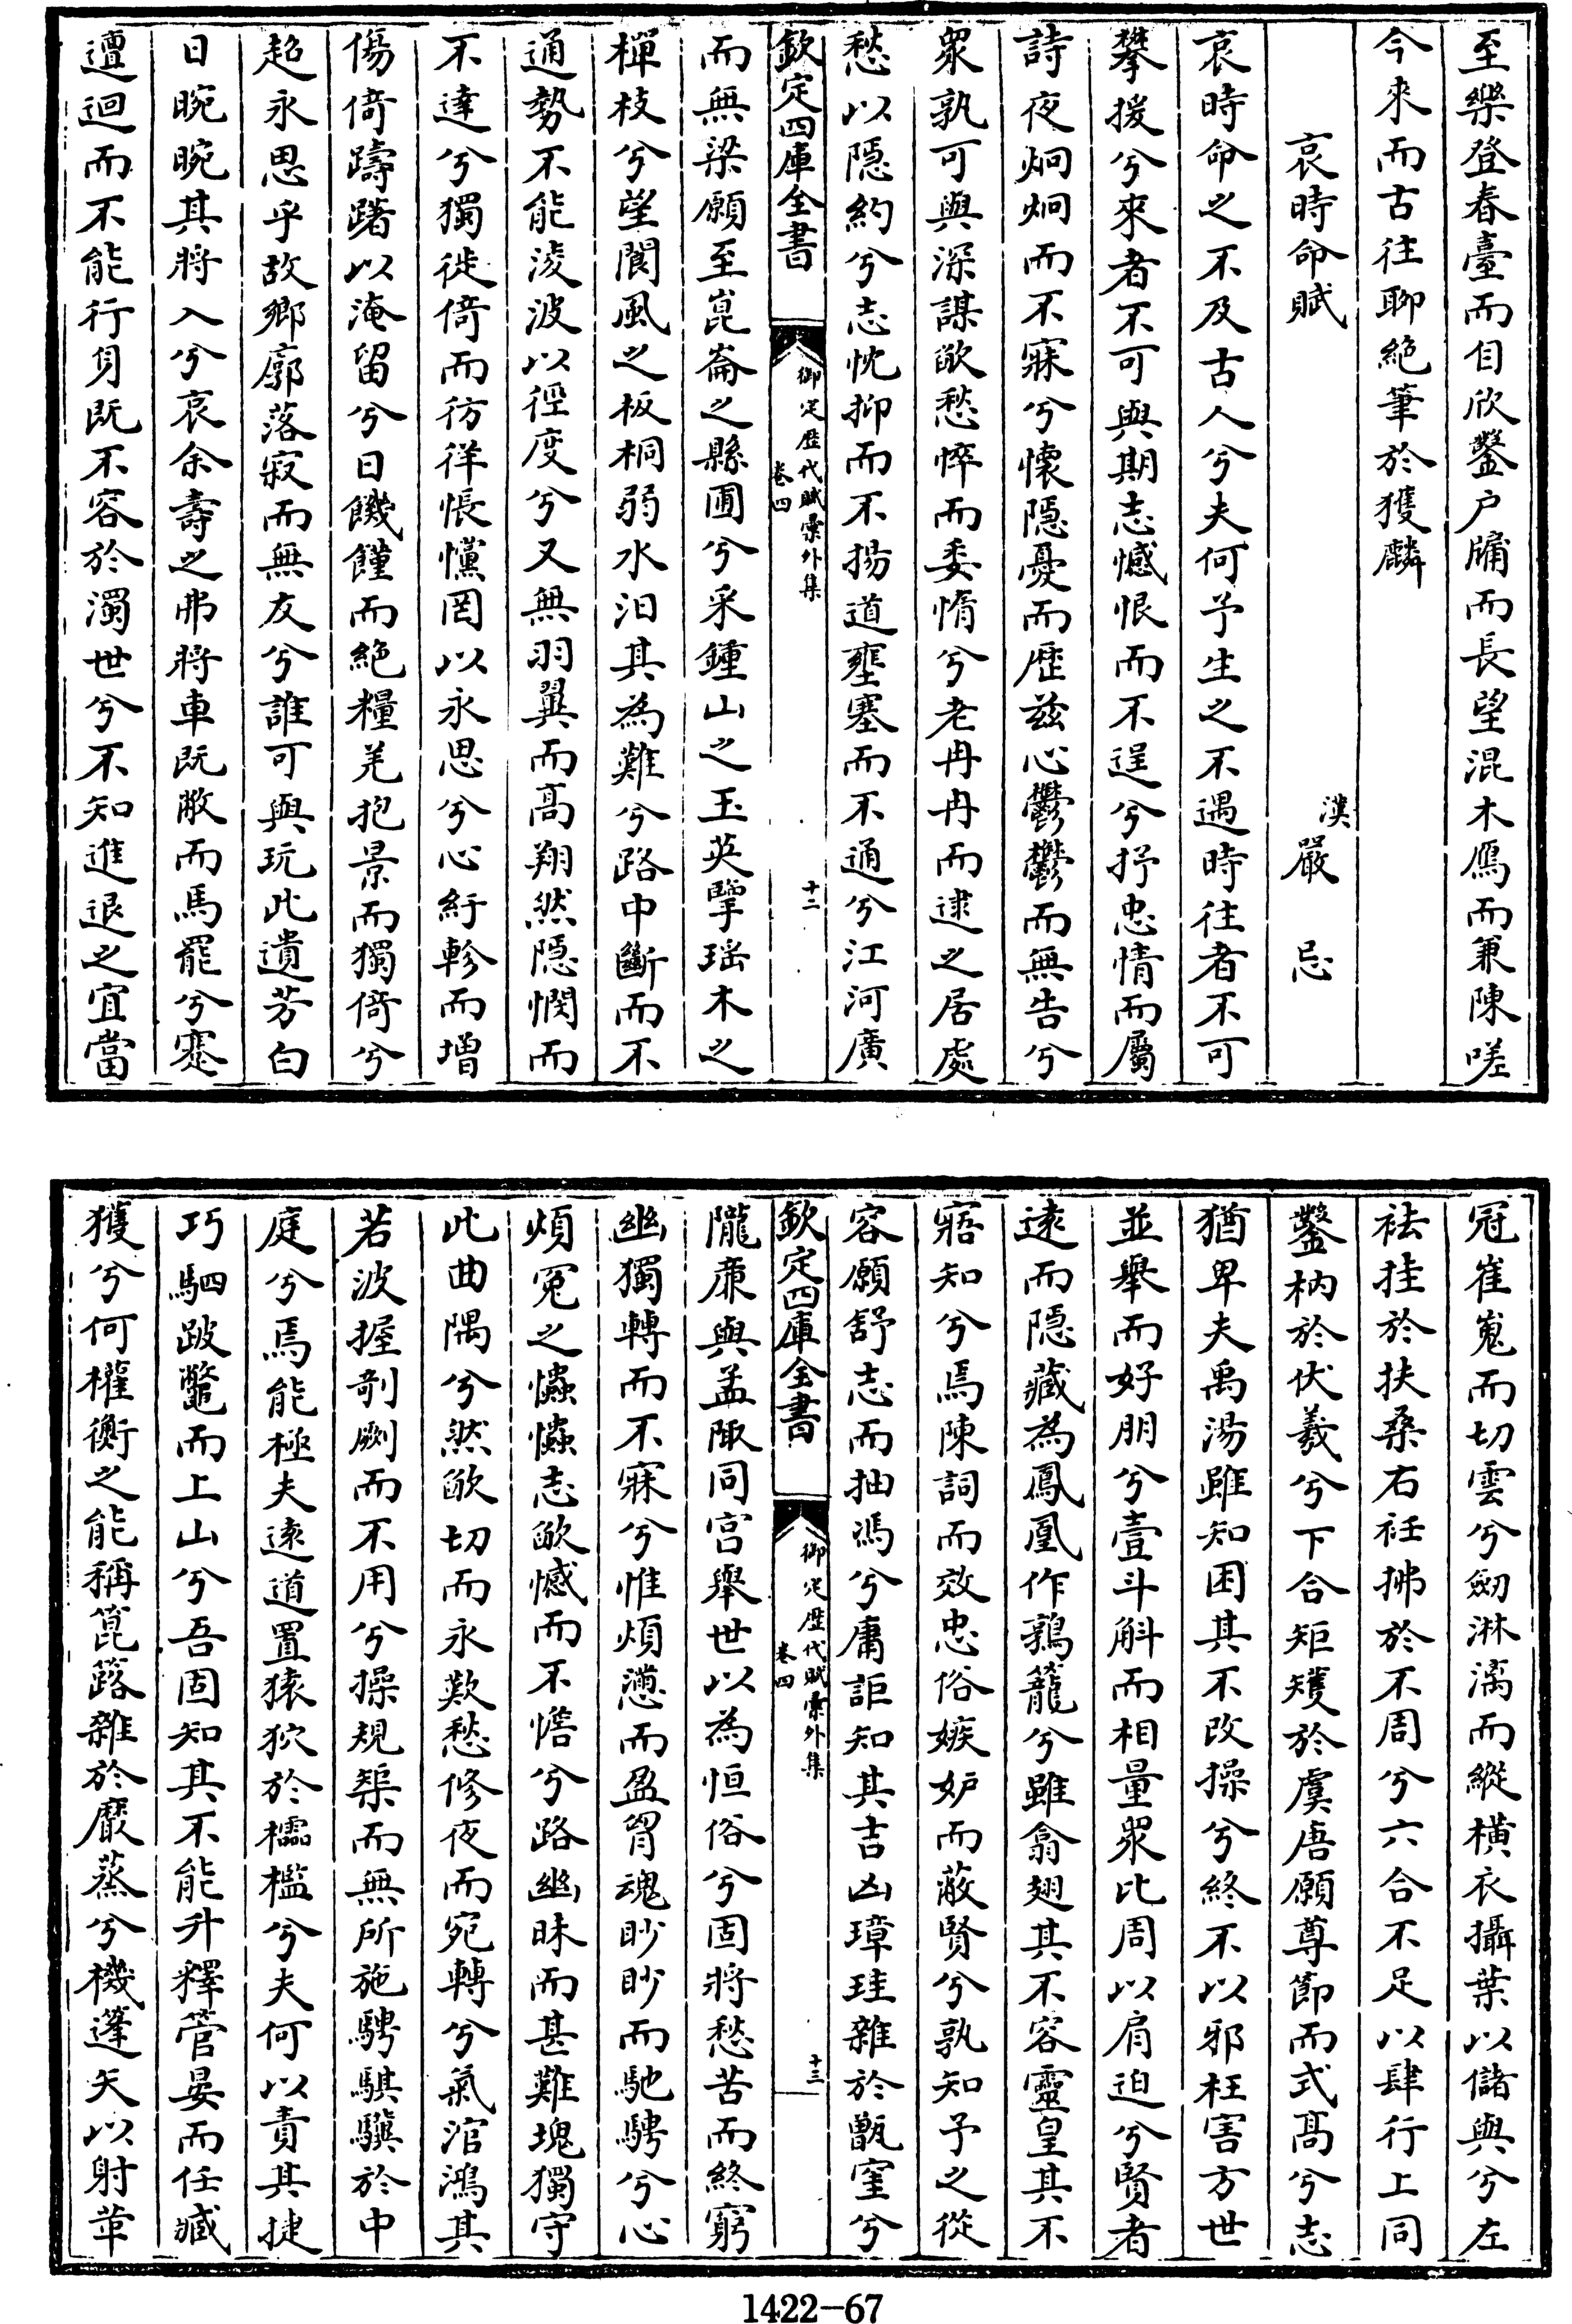 至樂登春臺而目欣鑿户牖而長望混木鴈而兼陳嗟
今來而古往聊絕筆於獲麟
哀時命賦
漢嚴忌
哀時命之不及古人兮夫何予生之不遇時往者不可
攀援兮來者不可與期志憾恨而不逞兮抒忠情而屬
詩夜炯炯而不寐兮懷隱憂而歴兹心鬱鬱而無告兮
衆孰可與深謀欿愁悴而委惰兮老冉冉而逮之居處
愁以隱約兮志忱抑而不揚道壅塞而不通兮江河廣
欽定四庫全書
御定歴代賦彙外集
卷四
十二
而無梁願至崑崙之縣圃兮采鍾山之玉英擥瑶木之
橝枝兮望閬風之板桐弱水汨其為難兮路中斷而不
通勢不能淩波以徑度兮又無羽翼而高翔然隱憫而
不達兮獨徙倚而彷徉悵懭罔以永思兮心紆軫而增
傷倚躊躇以淹留兮日饑饉而絕糧羌抱景而獨倚兮
超永思乎故鄉廓落寂而無友兮誰可與玩此遺芳白
日晼晼其將入兮哀余壽之弗將車既敝而馬罷兮蹇
邅迴而不能行身既不容於濁世兮不知進退之宜當
冠崔嵬而切雲兮劒淋漓而縱横衣攝葉以儲與兮左
袪挂於扶桑右衽拂於不周兮六合不足以肆行上同
鑿枘於伏羲兮下合矩矱於虞唐願尊節而式高兮志
猶卑夫禹湯雖知困其不改操兮終不以邪枉害方世
並舉而好朋兮壹斗斛而相量衆比周以肩迫兮賢者
逺而隱藏為鳳凰作鶉籠兮雖翕翅其不容靈皇其不
寤知兮焉陳詞而效忠俗嫉妒而蔽賢兮孰知予之從
容願舒志而抽馮兮庸詎知其吉凶璋珪雜於甑窐兮
欽定四庫全書
御定歴代賦彙外集
卷四
十三
隴亷與孟陬同宫舉世以為恒俗兮固將愁苦而終窮
幽獨轉而不寐兮惟煩懣而盈胷魂眇眇而馳騁兮心
煩冤之懺懺志欿憾而不憺兮路幽昧而甚難塊獨守
此曲隅兮然欿切而永歎愁修夜而宛轉兮氣涫㶇其
若波握剞劂而不用兮操規榘而無所施騁騏驥於中
庭兮焉能極夫逺道置猿狖於櫺檻兮夫何以責其捷
巧駟跛鼈而上山兮吾固知其不能升釋管晏而任臧
獲兮何權衡之能稱箟簬雜於黀蒸兮機蓬矢以射革
1422-67